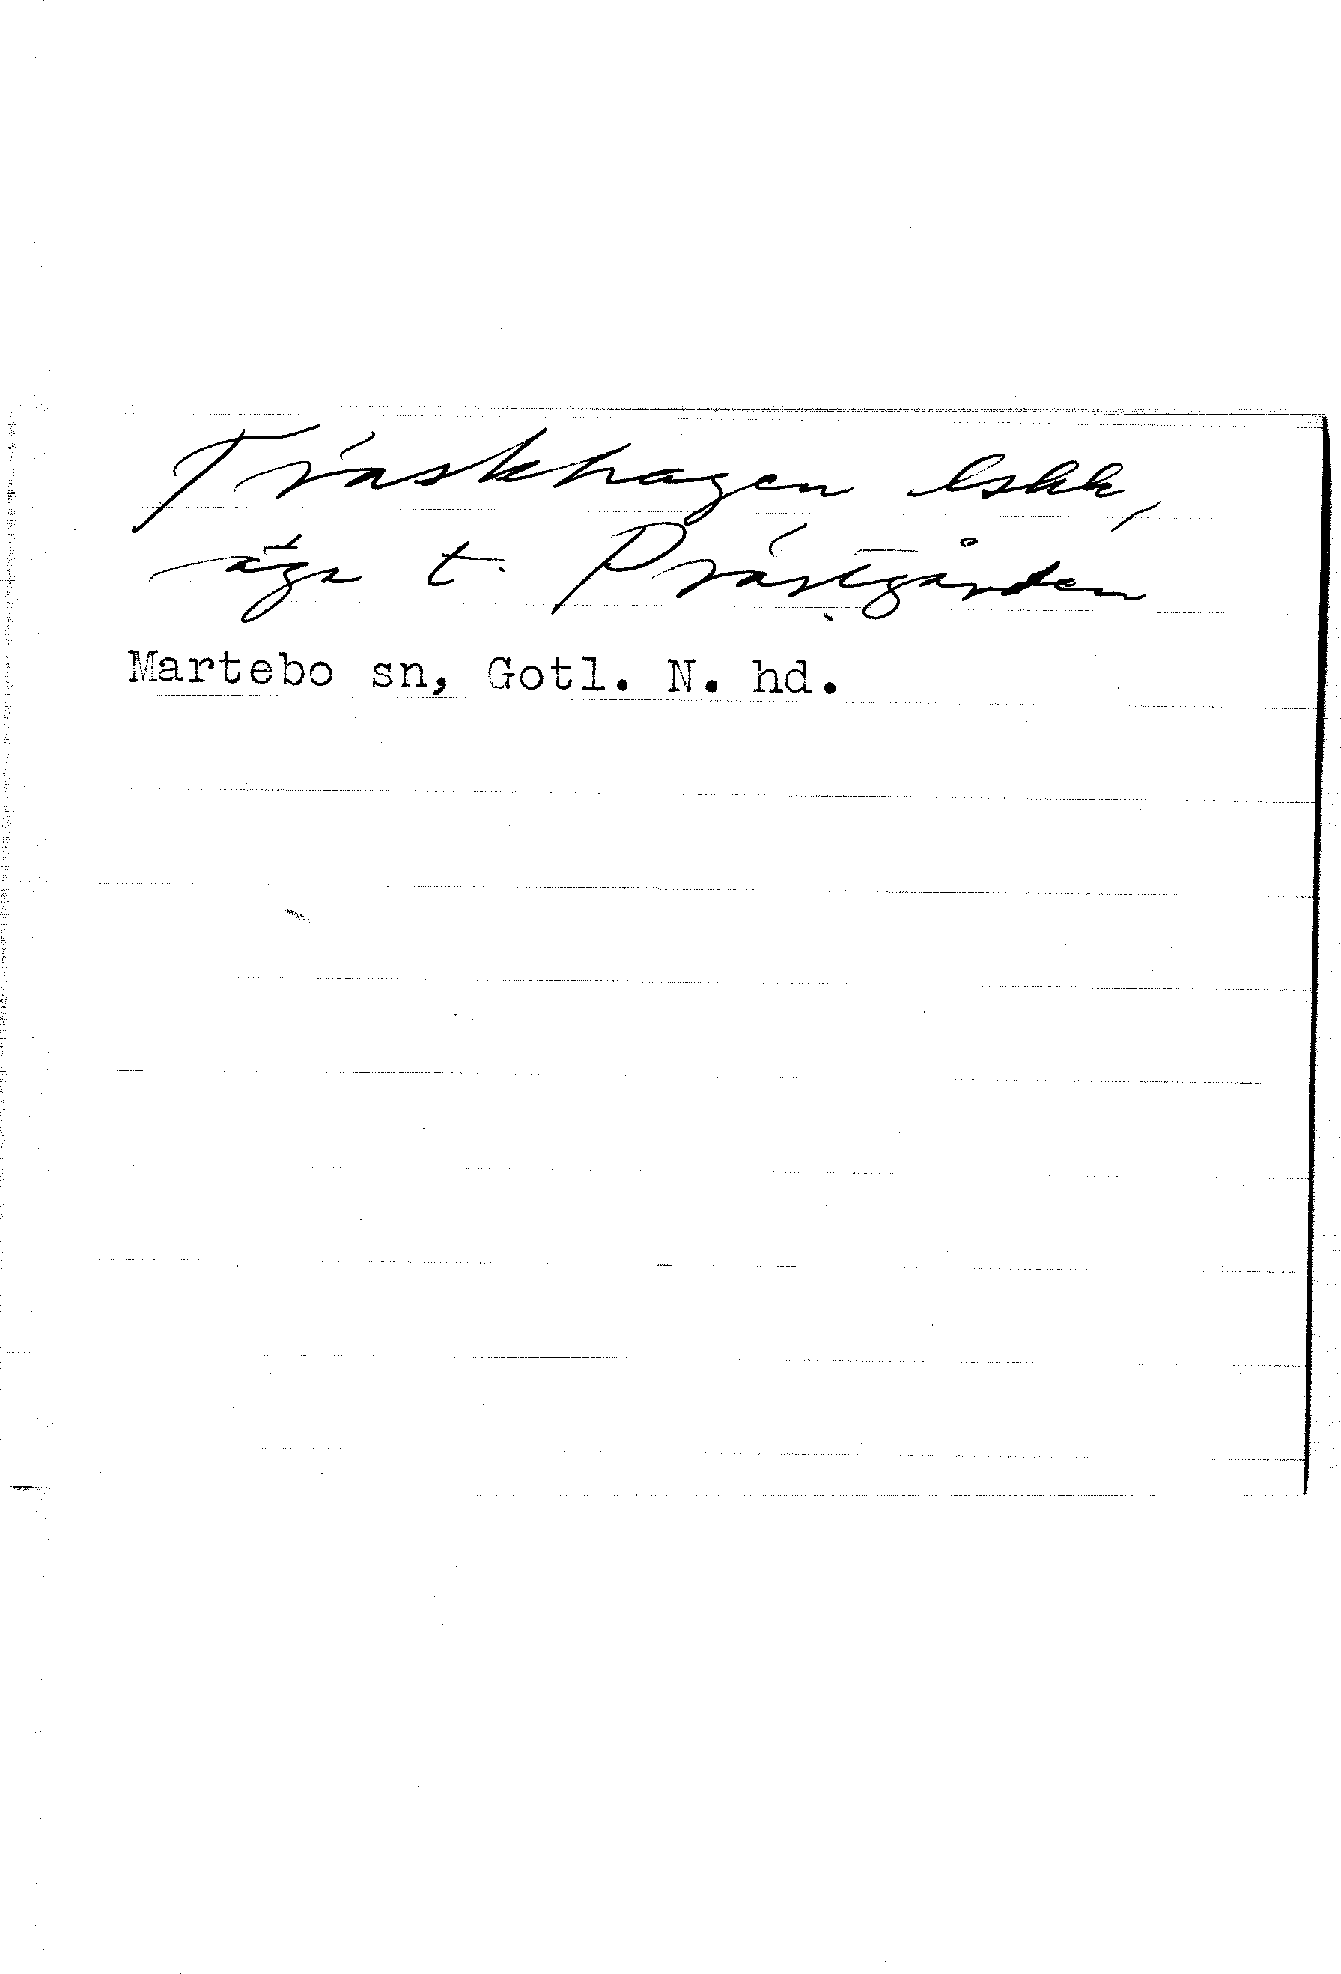 Träskhagen lskk,
äga t. Prästgården
Martebo sn, Gotl. N. hd.